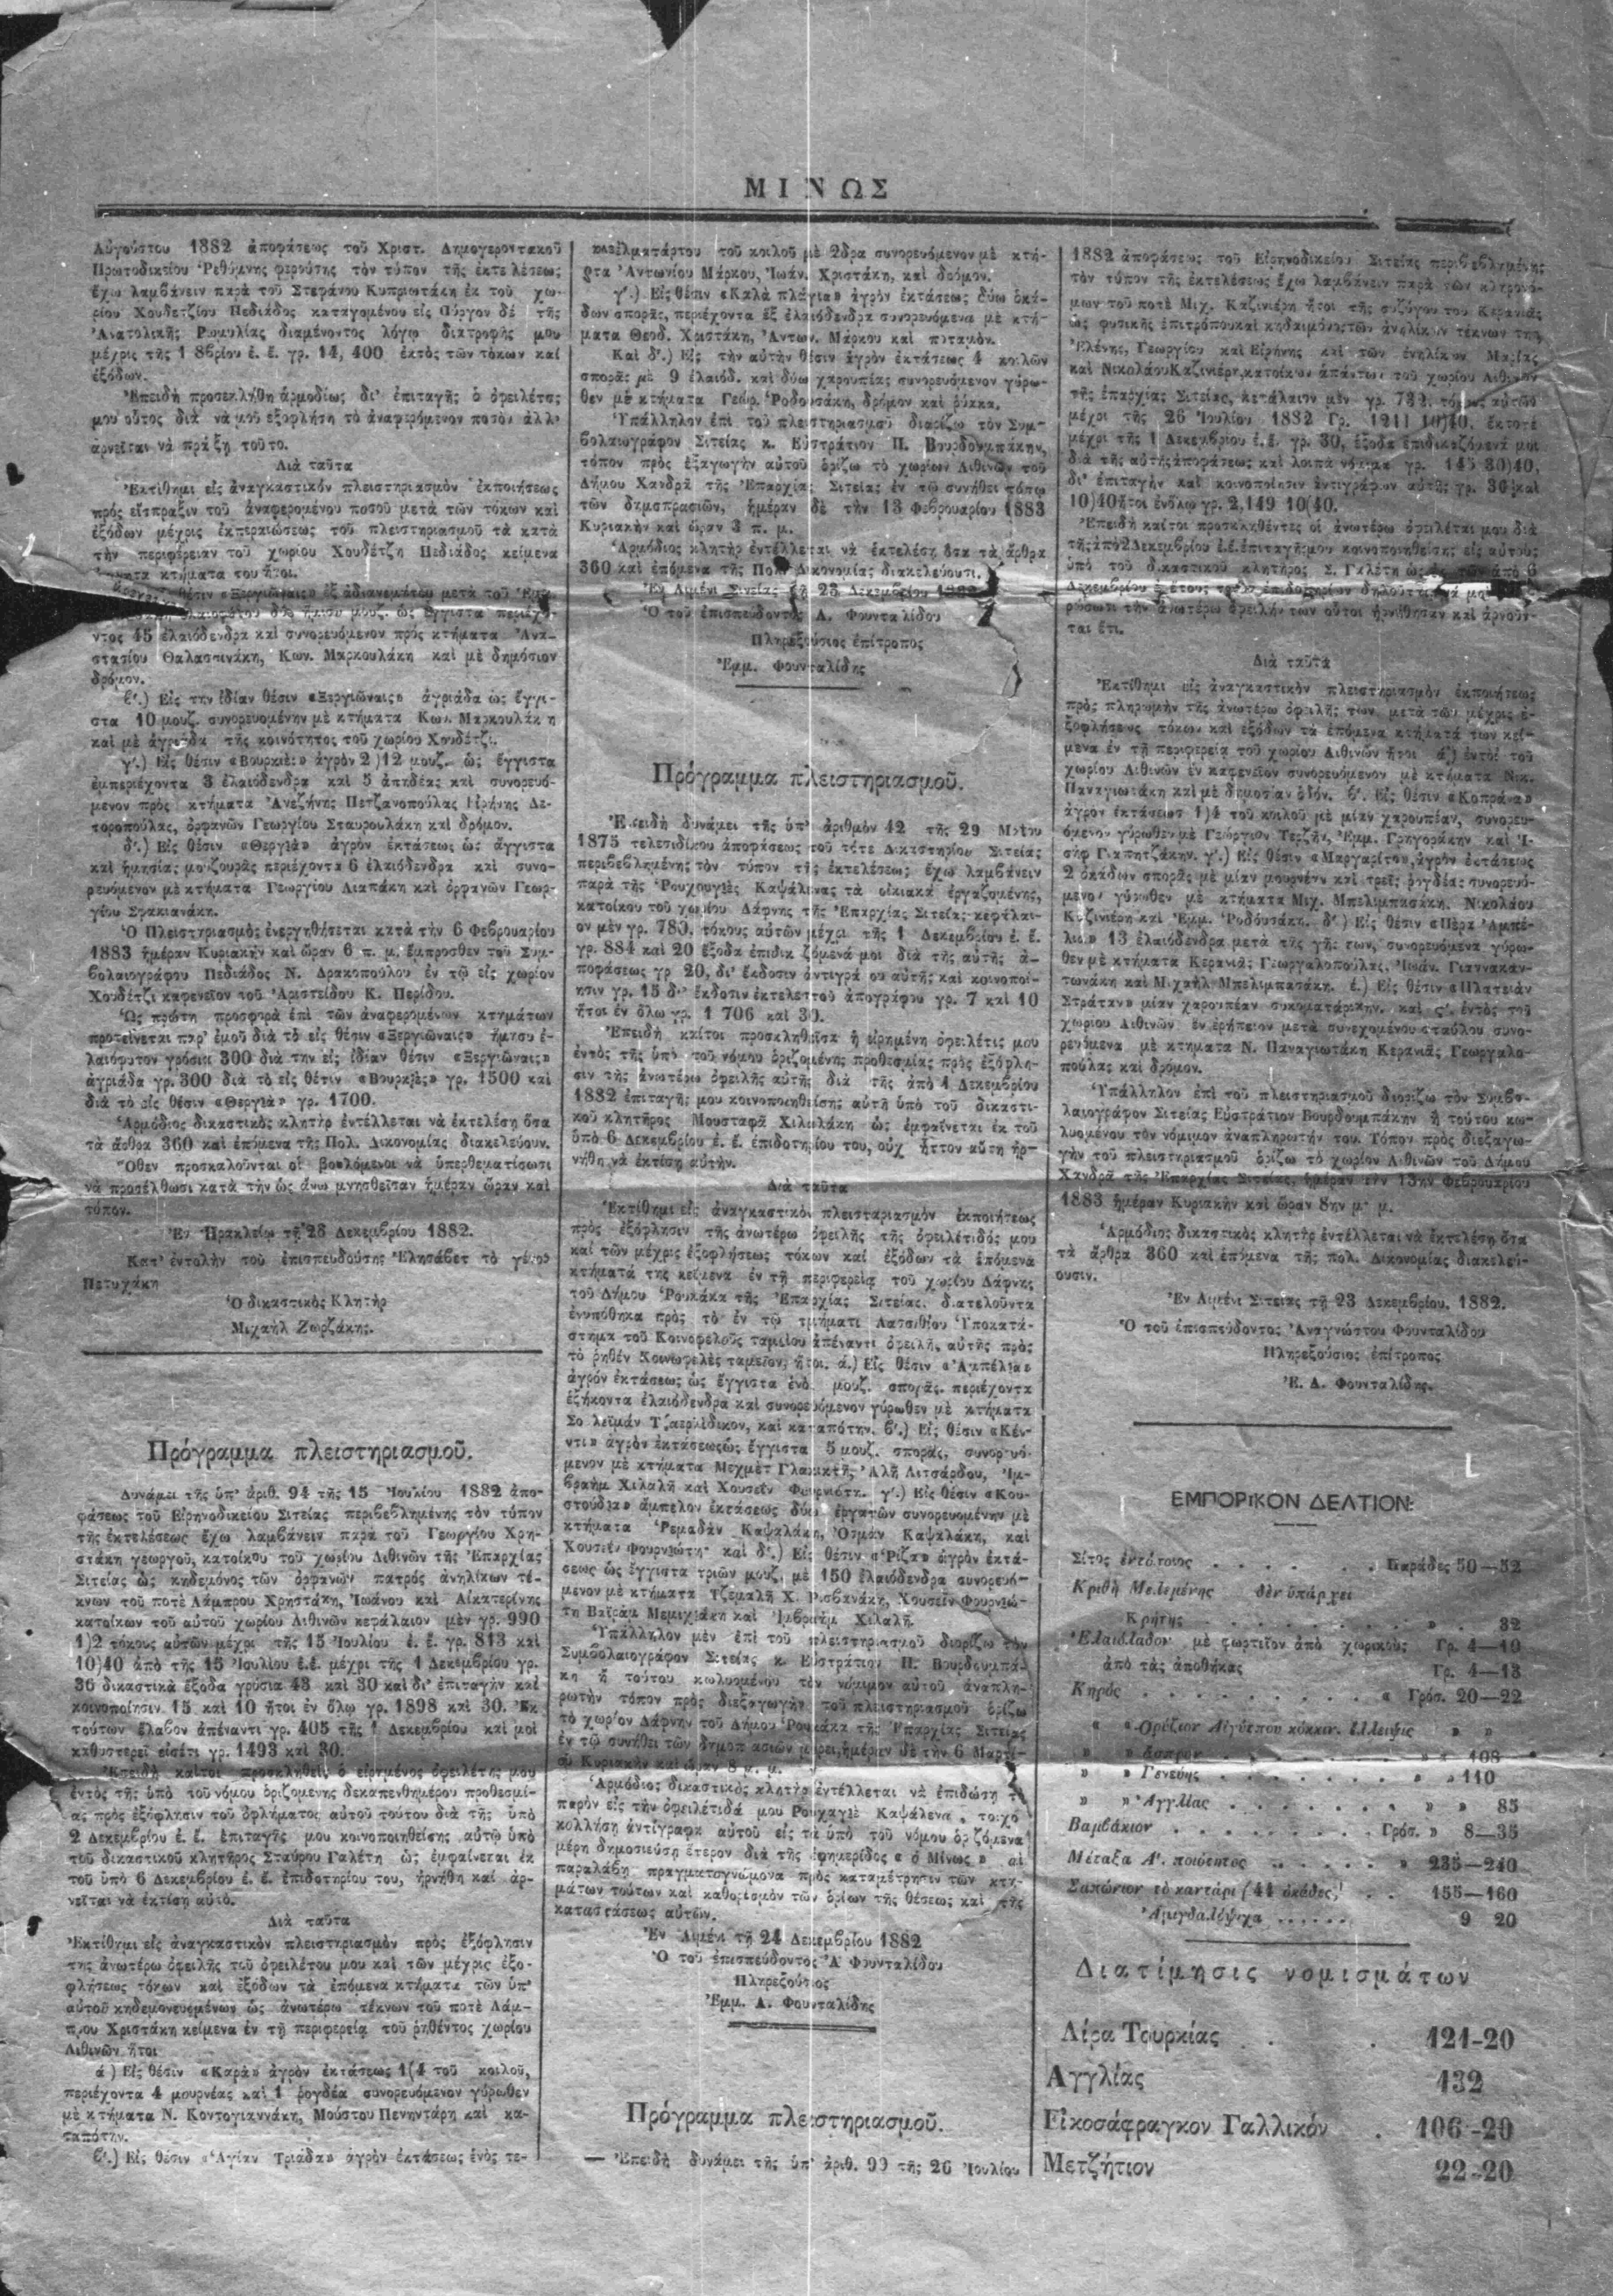 ΜΙΝΩΣ
Αὐγούστου 1882 ἀποφάσεως τοῦ Χριστ. Δημογεροντακοῦ
Πρωτοδικείου Ῥεθύμνης φερούσης τὸν τύπον τῆς ἐκτελέσεως
ἔχω λαμβάνειν παρὰ τοῦ Στεφάνου Κυπριωτάκη ἐκ τοῦ χω-
ρίου Χουδετζίου Πεδιάδος καταγομένου εἰς Πύργον δὲ τῆς
Ἀνατολικῆς Ρωμυλίας διαμένοντος λόγῳ διατροφῆς μου
μέχρις τῆς 1 8βρίου ἐ. ἔ. γρ. 14, 400 ἐκτὸς τῶν τόκων καί
ἐξόδων.
Ἐπειδὴ προσεκλήθη ἁρμοδίως δι' ἐπιταγῆς ὁ ὀφειλέτης
μου οὗτος διὰ νὰ μοῦ ἐξοφλήσῃ τὸ ἀναφερόμενον ποσὸν ἀλλ'
ἀρνεῖται νὰ πράξῃ τοῦτο.
Διὰ ταῦτα
Ἐκτίθημι εἰς ἀναγκαστικόν πλειστηριασμὸν ἐκποιήσεως
πρὸς εἴσπραξιν τοῦ ἀναφερομένου ποσοῦ μετὰ τῶν τόκων καὶ
ἐξόδων μέχρις ἐκπεραιώσεως τοῦ πλειστηριασμοῦ τὰ κατὰ
τὴν περιφέρειαν τοῦ χωρίου Χουδέτζη Πεδιάδος κείμενα
κτήματα του ἤτοι.
θέσιν «Ξεργιῶναις» ἐξ ἀδιανεμήτου μετὰ τοῦ
μουζ. ὡς ἔγγιστα περιέχο-
ντος 45 ἐλαιόδενδρα καὶ συνορευόμενον πρὸς κτήματα Ἀνα-
στασίου Θαλασσινάκη, Κων. Μαρκουλάκη καὶ μὲ δημόσιον
δρόμον.
β΄.) Εἰς την ἰδίαν θέσιν «Ξεργιῶναις» ἀγριάδα ὡς ἔγγι-
στα 10 μουζ. συνορευομένην μὲ κτήματα Κων. Μαρκουλάκη
καὶ μὲ ἀγριάδα τῆς κοινότητος τοῦ χωρίου Χουδέτζι.
γ΄.) Εἰς θέσιν «Βουρκιὲς» ἀγρὸν 2)12 μουζ. ὡς ἔγγιστα
ἐμπεριέχοντα 3 ἐλαιόδενδρα καὶ 5 ἀπηδέας καὶ συνορευό-
μενον πρὸς κτήματα Ἀνεζήνης Πετζανοπούλας Εἰρήνης Δε-
τοροπούλας, ὀρφανῶν Γεωργίου Σταυρουλάκη καὶ δρόμον.
δ΄.) Εἰς θέσιν «Θεργιὰ» ἀγρὸν ἐκτάσεως ὡς ἄγγιστα
καὶ ἡμισίας μουζουρᾶς περιέχοντα 6 ἐλαιόδενδρα καὶ συνο-
ρευόμενον μὲ κτήματα Γεωργίου Λιαπάκη καὶ ὀρφανῶν Γεωρ-
γίου Σφακιανάκη.
Ὁ Πλειστηριασμὸς ἐνεργηθήσεται κατὰ τὴν 6 Φεβρουαρίου
1883 ἡμέραν Κυριακὴν καὶ ὥραν 6 π. μ. ἔμπροσθεν τοῦ Συμ-
βολαιογράφου Πεδιάδος Ν. Δρακοπούλου ἐν τῷ εἰς χωρίον
Χουδέτζι καφενεῖον τοῦ Ἀριστείδου Κ. Περίδου.
Ὡς πρώτη προσφορὰ ἐπὶ τῶν ἀναφερομένων κτημάτων
προτείνεται παρ' ἐμοῦ διὰ τὸ εἰς θέσιν «Ξεργιῶναις» ἥμισυ ἐ-
λαιόφυτον γρόσια 300 διὰ την εἰς ἰδίαν θέσιν «Ξεργιῶναις»
ἀγριάδα γρ. 300 διὰ τὸ εἰς θέσιν «Βουρκιὲς» γρ. 1500 καὶ
διὰ τὸ εἰς θέσιν «Θεργιὰ» γρ. 1700.
Ἁρμόδιος δικαστικὸς κλητὴρ ἐντέλλεται νὰ ἐκτελέσῃ ὅσα
τὰ ἄρθρα 360 καὶ ἑπόμενα τῆς Πολ. Δικονομίας διακελεύουν.
Ὅθεν προσκαλοῦνται οἱ βουλόμενοι νὰ ὑπερθεματίσωσι
νὰ προσέλθωσι κατὰ τὴν ὡς ἄνω μνησθεῖσαν ἡμέραν ὥραν καὶ
τόπον.
Ἐν Ἡρακλείῳ τῇ 23 Δεκεμβρίου 1882.
Κατ' ἐντολὴν τοῦ ἐπισπευδούσης Ἐλησάβετ τὸ γένος
Πετυχάκη
Ὁ δικαστικὸς Κλητὴρ
Μιχαὴλ Ζωρζάκης.
Πρόγραμμα πλειστηριασμοῦ.
Δυνάμει τῆς ὑπ' ἀριθ. 94 τῆς 15 Ἰουλίου 1882 ἀπο-
φάσεως τοῦ Εἰρηνοδικείου Σιτείας περιβεβλημένης τὸν τύπον
τῆς ἐκτελέσεως ἔχω λαμβάνειν παρὰ τοῦ Γεωργίου Χρη-
στάκη γεωργοῦ, κατοίκου τοῦ χωρίου Λιθινῶν τῆς Ἐπαρχίας
Σιτείας ὡς κηδεμόνος τῶν ὀρφανῶν πατρὸς ἀνηλίκων τέ-
κνων τοῦ ποτὲ Λάμπρου Χρηστάκη, Ἰωάνου καὶ Αἰκατερίνης
κατοίκων τοῦ αὐτοῦ χωρίου Λιθινῶν κεφάλαιον μὲν γρ. 990
1)2 τόκους αὐτῶν μέχρι τῆς 15 Ἰουλίου ἐ. ἔ. γρ. 813 καὶ
10)40 ἀπὸ τῆς 15 Ἰουλίου ἐ.ἔ. μέχρι τῆς 1 Δεκεμβρίου γρ.
36 δικαστικὰ ἔξοδα γρόσια 43 καὶ 30 καὶ δι' ἐπιταγὴν καὶ
κοινοποίησιν 15 καὶ 10 ἤτοι ἐν ὅλῳ γρ. 1898 καὶ 30. Ἐκ
τούτων ἔλαβον ἀπέναντι γρ. 405 τῆς 1 Δεκεμβρίου καὶ μοὶ
καθυστερεῖ εἰσέτι γρ. 1493 καὶ 30.
Ἐπειδὴ καίτοι προσκληθεὶς ὁ εἰρημένος ὀφειλέτης μου
ἐντὸς τῆς ὑπὸ τοῦ νόμου ὁριζομένης δεκαπενθημέρου προθεσμί-
ας πρὸς ἐξόφλησιν τοῦ ὀφλήματος αὐτοῦ τούτου διὰ τῆς ὑπὸ
2 Δεκεμβρίου ἐ. ἔ. ἐπιταγῆς μου κοινοποιηθείσης αὐτῷ ὑπὸ
τοῦ δικαστικοῦ κλητῆρος Σταύρου Γαλέτη ὡς ἐμφαίνεται ἐκ
τοῦ ὑπὸ 6 Δεκεμβρίου ἐ. ἔ. ἐπιδοτηρίου του, ἠρνήθη καί ἀρ-
νεῖται νὰ ἐκτίσῃ αὐτό.
Διὰ ταῦτα
Ἐκτίθημι εἰς ἀναγκαστικὸν πλειστηριασμὸν πρὸς ἐξόφλησιν
της ἀνωτέρω ὀφειλῆς τοῦ ὀφειλέτου μου καὶ τῶν μέχρις ἐξο-
φλήσεως τόκων καὶ ἐξόδων τὰ ἑπόμενα κτήματα τῶν ὑπ'
αὐτοῦ κηδεμονευομένων ὡς ἀνωτέρω τέκνων τοῦ ποτὲ Λάμ-
πρου Χριστάκη κείμενα ἐν τῇ περιφερείᾳ τοῦ ῥηθέντος χωρίου
Λιθινῶν ἤτοι
ά) Εἰς θέσιν «Καρὰ» ἀγρὸν ἐκτάσεως 1(4 τοῦ κοιλοῦ,
περιέχοντα 4 μουρνέας καὶ 1 ῥογδέα συνορευόμενον γύρωθεν
μὲ κτήματα Ν. Κοντογιαννάκη, Μούστου Πενηντάρη καὶ κα-
ταπότην.
β΄.) Εἰς θέσιν «Ἁγίαν Τριάδα» ἀγρὸν ἐκτάσεως ἑνὸς τε-
τοῦ κοιλοῦ μὲ 2δρα συνορευόμενον μὲ κτή-
Ἀντωνίου Μάρκου, Ἰωάν. Χριστάκη, καὶ δρόμον.
γ΄.) Εἰς θέσιν «Καλὰ πλάγια» ἀγρὸν ἐκτάσεως δύω ὀκά-
δων σπορᾶς, περιέχοντα ἓξ ἐλαιόδενδρα συνορευόμενα μὲ κτή-
ματα Θεοδ. Χριστάκη, Ἀντων. Μάρκου καὶ ποταμόν.
Καὶ δ΄.) Εἰς τὴν αὐτὴν θέσιν ἀγρὸν ἐκτάσεως 4 κοιλῶν
σπορᾶς μὲ 9 ἐλαιόδ. καὶ δύω χαρουπίας συνορευόμενον γύρω-
θεν μὲ κτήματα Γεώρ. Ῥοδουσάκη, δρόμον καὶ ῥύακα.
Ὑπάλληλον ἐπὶ τοῦ πλειστηριασμοῦ διορίζω τὸν Συμ-
βολαιογράφον Σιτείας κ. Εὐστράτιον Π. Βουρδουμπάκην,
τόπον πρὸς ἐξαγωγὴν αὐτοῦ ὁρίζω τὸ χωρίον Λιθινῶν τοῦ
Δήμου Χανδρᾶ τῆς Ἐπαρχίας Σιτείας ἐν τῷ συνήθει τόπῳ
τῶν δημοπρασιῶν, ἡμέραν δὲ τὴν 13 Φεβρουαρίου 1883
Κυριακὴν καὶ ὥραν 3 π. μ.
Ἁρμόδιος κλητὴρ ἐντέλλεται νὰ ἐκτελέσῃ ὅσα τὰ ἄρθρα
360 καὶ ἑπόμενα τῆς Πολ. Δικονομίας διακελεύουσι.
Ἐν Λιμένι Σιτείας τῇ 23 Δεκεμβρίου 1882
Ὁ τοῦ ἐπισπεύδοντος Α. Φουνταλίδου
Πληρεξούσιος ἐπίτροπος
Ἐμμ. Φουνταλίδης
Πρόγραμμα πλειστηριασμοῦ.
Ἐπειδὴ δυνάμει τῆς ὑπ' ἀριθμὸν 42 τῆς 29 Μαΐου
1875 τελεσιδίκου ἀποφάσεως τοῦ τότε Δικαστηρίου Σιτείας
περιβεβλημένης τὸν τύπον τῆς ἐκτελέσεως ἔχω λαμβάνειν
παρὰ τῆς Καψάλενας τὰ οἰκιακὰ ἐργαζομένης,
κατοίκου τοῦ χωρίου Δάφνης τῆς Ἐπαρχίας Σιτείας κεφάλαι-
ον μὲν γρ. 780, τόκους αὐτῶν μέχρι τῆς 1 Δεκεμβρίου ἐ. ἔ.
γρ. 884 καὶ 20 ἔξοδα ἐπιδικαζόμενά μοι διὰ τῆς αὐτῆς ἀ-
ποφάσεως γρ 20, δι' ἔκδοσιν ἀντιγράφου αὐτῆς καὶ κοινοποί-
ησιν γρ. 15 δι' ἔκδοσιν ἐκτελεστοῦ ἀπογράφου γρ. 7 καὶ 10
ἤτοι ἐν ὅλω γρ. 1706 καὶ 30.
Ἐπειδὴ καίτοι προσκληθεῖσα ἡ εἰρημένη ὀφειλέτις μου
ἐντὸς τῆς ὑπὸ τοῦ νόμου ὁριζομένης προθεσμίας πρὸς ἐξόφλη-
σιν τῆς ἀνωτέρω ὀφειλῆς αὐτῆς διὰ τῆς ἀπὸ 1 Δεκεμβρίου
1882 ἐπιταγῆς μου κοινοποιηθείσης αὐτῇ ὑπὸ τοῦ δικαστι-
κοῦ κλητῆρος Μουσταφᾶ Χιλαλάκη ὡς ἐμφαίνεται ἐκ τοῦ
ὑπὸ 6 Δεκεμβρίου ἐ. ἔ. ἐπιδοτηρίου του, οὐχ ἧττον αὕτη ἠρ-
νήθη νὰ ἐκτίσῃ αὐτήν.
Διὰ ταῦτα
Ἐκτίθημι εἰς ἀναγκαστικὸν πλεισταριασμὸν ἐκποιήσεως
πρὸς ἐξόφλησιν τῆς ἀνωτέρω ὀφειλῆς τῆς ὀφειλέτιδός μου
καὶ τῶν μέχρις ἐξοφλήσεως τόκων καὶ ἐξόδων τὰ ἑπόμενα
κτήματά της κείμενα ἐν τῇ περιφερείᾳ τοῦ χωρίου Δάφνης
τοῦ Δήμου Ῥουκάκα τῆς Ἐπαρχίας Σιτείας, διατελοῦντα
ἐνυπόθηκα πρὸς τὸ ἐν τῷ τμήματι Λασσιθίου Ὑποκατά-
στημα τοῦ Κοινοφελοῦς ταμείου ἀπέναντι ὀφειλῆς αὐτῆς πρὸς
τὸ ῥηθὲν Κοινωφελὲς ταμεῖον, ἤτοι. ά.) Εἰς θέσιν «Ἀμπέλια»
ἀγρὸν ἐκτάσεως ὡς ἔγγιστα ἑνὸς μουζ. σπορᾶς, περιέχοντα
ἑξήκοντα ἐλαιόδενδρα καὶ συνορευόμενον γύρωθεν μὲ κτήματα
καὶ καταπότην. β΄.) Εἰς θέσιν «Κέν-
ντι» ἀγρὸν ἐκτάσεως ὡς ἔγγιστα 5 μουζ. σπορᾶς, συνορευό-
μενον μὲ κτήματα Μεχμὲτ Ἀλῆ Λιτσάρδου, Ἰμ-
βραὴμ Χιλαλῆ καὶ Χουσεῒν Φουρνιώτη. γ΄.) Εἰς θέσιν «Κου-
στούδια» ἄμπελον ἐκτάσεως δύω ἐργατῶν συνορευομένην μὲ
κτήματα Ῥεμαδὰν Καψαλάκη, Ὀσμὰν Καψαλάκη, καὶ
Χουσεῒν Φουρνιώτη καὶ δ΄.) Εἰς θέσιν «Ῥίζα» ἀγρὸν ἐκτά-
σεως ὡς ἔγγιστα τριῶν μουζ. μὲ 150 ἐλαιόδενδρα συνορευό-
μενον μὲ κτήματα Τζεμαλῆ Χ. Ρισβανάκη, Χουσεῒν Φουρνιώ-
τη Βαϊρὰμ Μεμιχιάκη καὶ Ἰμβραὴμ Χιλαλῆ.
Ὑπάλληλον μὲν ἐπὶ τοῦ πλειστηριασμοῦ διορίζω τὸν
Συμβολαιογράφον Σιτείας κ. Εὐστράτιον Π. Βουρδουμπά-
κη ἢ τούτου κωλυομένου τὸν νόμιμον αὐτοῦ ἀναπλη-
ρωτὴν τόπον πρὸς διεξαγωγὴν τοῦ πλειστηριασμοῦ ὁρίζω
τὸ χωρίον Δάφνην τοῦ Δήμου Ῥουκάκα τῆς Ἐπαρχίας Σιτείας
ἐν τῷ συνήθει τῶν δημοπρασιῶν μέρει, ἡμέραν δὲ τὴν 6 Μαρτί-
ου Κυριακὴν καὶ ὥραν 8 π. μ.
Ἁρμόδιος δικαστικὸς κλητὴρ ἐντέλλεται νὰ ἐπιδώσῃ τὸ
παρὸν εἰς τὴν ὀφειλέτιδά μου Ρουχαγιὲ Καψάλενα, τοιχο
κολλήσῃ ἀντίγραφα αὐτοῦ εἰς τὰ ὑπὸ τοῦ νόμου ὁριζόμενα
μέρη δημοσιεύσῃ ἕτερον διὰ τῆς ἐφημερίδος « ὁ Μίνως »
παραλάβῃ πραγματογνώμονα πρὸς καταμέτρησιν τῶν κτη-
μάτων τούτων καὶ καθορισμὸν τῶν ὁρίων τῆς θέσεως καὶ τῆς
καταστάσεως αὐτῶν.
Ἐν Λιμένι τῇ 24 Δεκεμβρίου 1882
Ὁ τοῦ ἐπισπεύδοντος Ἀ Φουνταλίδου
Πληρεξούσιος
Ἐμμ. Α. Φουνταλίδης
Πρόγραμμα πλειστηριασμοῦ.
— Ἐπειδὴ δυνάμει τῆς ὑπ' ἀριθ. 99 τῆς 26 Ἰουλίου
1882 ἀποφάσεως τοῦ Εἰρηνοδικείου Σιτείας περιβεβλημένης
τὸν τύπον τῆς ἐκτελέσεως ἔχω λαμβάνειν παρὰ τῶν κληρονό-
μων τοῦ ποτὲ Μιχ. Καζινιέρη ἤτοι τῆς συζύγου του Κερανιᾶς
ὡς φυσικῆς ἐπιτρόπου καὶ κηδαιμόνος τῶν ἀνηλίκων τέκνων της
Ἑλένης, Γεωργίου καὶ Εἰρήνης καὶ τῶν ἐνηλίκων Μαρίας
καὶ Νικολάου Καζινιέρη, κατοίκων ἁπάντων τοῦ χωρίου Λιθινῶν
τῆς ἐπαρχίας Σιτείας, κεφάλαιον μὲν γρ. 732, τόκους αὐτῶν
μέχρι τῆς 26 Ἰουλίου 1882 Γρ. 1211 10)40, ἔκτοτε
μέχρι τῆς 1 Δεκεμβρίου ἐ.ἔ. γρ. 30, ἔξοδα ἐπιδικαζόμενά μοι
διὰ τῆς αὐτῆς ἀποφάσεως καὶ λοιπὰ νόμιμα γρ. 145 30)40,
δι' ἐπιταγὴν καὶ κοινοποίησιν ἀντιγράφων αὐτῆς γρ. 30 καὶ
10)40 ἤτοι ἐν ὅλῳ γρ. 2,149 10(40.
Ἐπειδὴ καίτοι προσκληθέντες οἱ ἀνωτέρω ὀφειλέται μου διὰ
τῆς ἀπὸ 2 Δεκεμβρίου ἐ.ἔ. ἐπιταγῆς μου κοινοποιηθείσης εἰς αὐτοὺς
ὑπὸ τοῦ δικαστικοῦ κλητῆρος Σ. Γαλέτη ὡς ἐκ τῶν ἀπὸ 6
Δεκεμβρίου ἐ. ἔτους ἐπιδοτηρίων δηλοῦται νὰ
ρώσωσι τὴν ἀνωτέρω ὀφειλήν των οὗτοι ἠρνήθησαν καὶ ἀρνοῦν-
ται ἔτι.
Διὰ ταῦτα
Ἐκτίθημι εἰς ἀναγκαστικὸν πλειστηριασμὸν ἐκποιήσεως
πρὸς πληρωμὴν τῆς ἀνωτέρω ὀφειλῆς των μετὰ τῶν μέχρις ἐ-
ξοφλήσεως τόκων καὶ ἐξόδων τὰ ἑπόμενα κτήματά των κεί-
μενα ἐν τῇ περιφερείᾳ τοῦ χωρίου Λιθινῶν ἤτοι ά) ἐντὸς τοῦ
χωρίου Λιθινῶν ἓν καφενεῖον συνορευόμενον μὲ κτήματα Νικ.
Παναγιωτάκη καὶ μὲ δημοσίαν ὁδόν. β΄. Εἰς θέσιν «Κοπράνα»
ἀγρὸν ἐκτάσεως 1)4 τοῦ κοιλοῦ μὲ μίαν χαρουπέαν, συνορευ-
όμενον γύρωθεν μὲ Γεώργιον Τερζῆν, Ἐμμ. Γρηγοράκην καὶ Ἰ-
σὴφ Γιαπητζάκην. γ΄.) Εἰς θέσιν «Μαργαρίτο», ἀγρὸν ἐκτάσεως
2 ὀκάδων σπορᾶς μὲ μίαν μουρνέαν καὶ τρεῖς ῥογδέας συνορευό-
μενον γύρωθεν μὲ κτήματα Μιχ. Μπελιμπασάκη, Νικολάου
Καζινιέρη καὶ Ἐμμ. Ῥοδουσάκη. δ΄.) Εἰς θέσιν «Πέρα Ἀμπέ-
λια» 13 ἐλαιόδενδρα μετὰ τῆς γῆς των, συνορευόμενα γύρω-
θεν μὲ κτήματα Κερανιᾶς Γεωργαλοπούλας, Ἰωάν. Γιαννακαν-
τωνάκη καὶ Μιχαὴλ Μπελιμπασάκη. έ.) Εἰς θέσιν «Πλατειὰν
Στράταν» μίαν χαρουπέαν συκοματάρικην. καὶ ς΄. ἐντὸς τοῦ
χωρίου Λιθινῶν ἓν ἐρήπειον μετὰ συνεχομένου σταύλου συνο-
ρευόμενα μὲ κτηματα Ν. Παναγιωτάκη Κερανιᾶς Γεωργαλο-
πούλας καὶ δρόμον.
Ὑπάλληλον ἐπὶ τοῦ πλειστηριασμοῦ διορίζω τὸν Συμβο-
λαιογράφον Σιτείας Εὐστράτιον Βουρδουμπάκην ἢ τούτου κω-
λυομένου τὸν νόμιμον ἀναπληρωτήν του. Τόπον πρὸς διεξαγω-
γὴν τοῦ πλειστηριασμοῦ ὁρίζω τὸ χωρίον Λιθινῶν τοῦ Δήμου
Χανδρᾶ τῆς Ἐπαρχίας Σιτείας, ἡμέραν τὴν 13ην Φεβρουαρίου
1883 ἡμέραν Κυριακὴν καὶ ὥραν 8ην μ· μ.
Ἁρμόδιος δικαστικὸς κλητὴρ ἐντέλλεται νὰ ἐκτελέσῃ ὅσα
τὰ ἄρθρα 360 καὶ ἑπόμενα τῆς πολ. Δικονομίας διακελεύ-
ουσιν.
Ἐν Λιμένι Σιτείας τῇ 23 Δεκεμβρίου, 1882.
Ὁ τοῦ ἐπισπεύδοντος Ἀναγνώστου Φουνταλίδου
Πληρεξούσιος ἐπίτροπος
Ἐ. Α. Φουνταλίδης.
ΕΜΠΟΡΙΚΟΝ ΔΕΛΤΙΟΝ:
Σῖτος ἐντόπιος . . . . Παράδες 50—52
Κριθὴ Μελεμένης δὲν ὑπάρχει
Κρήτης . . . . . . . . » . 32
Ἐλαιόλαδον μὲ φορτεῖον ἀπὸ χωρικοὺς Γρ. 4—10
ἀπὸ τὰς ἀποθήκας Γρ. 4—13
Κηρὸς . . . . . . . . . « Γρόσ. 20—22
« « Ὀρύζιον Αἰγύπτου κόκκιν. ἔλλειψις » »
» » ἄσπρον . . . . . . » « 108
» » Γενεύης . . . . . . » » 110
» » Ἀγγλίας . . . . . . » » 85
Βαμβάκιον . . . . . . . . Γρόσ. » 8—35
Μέταξα Α΄. ποιότητος . . . . » 235—240
Σαπώνιον τὸ καντάρι (44 ὀκάδες) . . 155—160
Ἀμυγδαλόψιχα . . . . . . 9 20
Διατίμησις νομισμάτων
Λίρα Τουρκίας . . 121-20
Αγγλίας 132
Εἰκοσάφραγκον Γαλλικόν . 106-20
Μετζήτιον 22-20